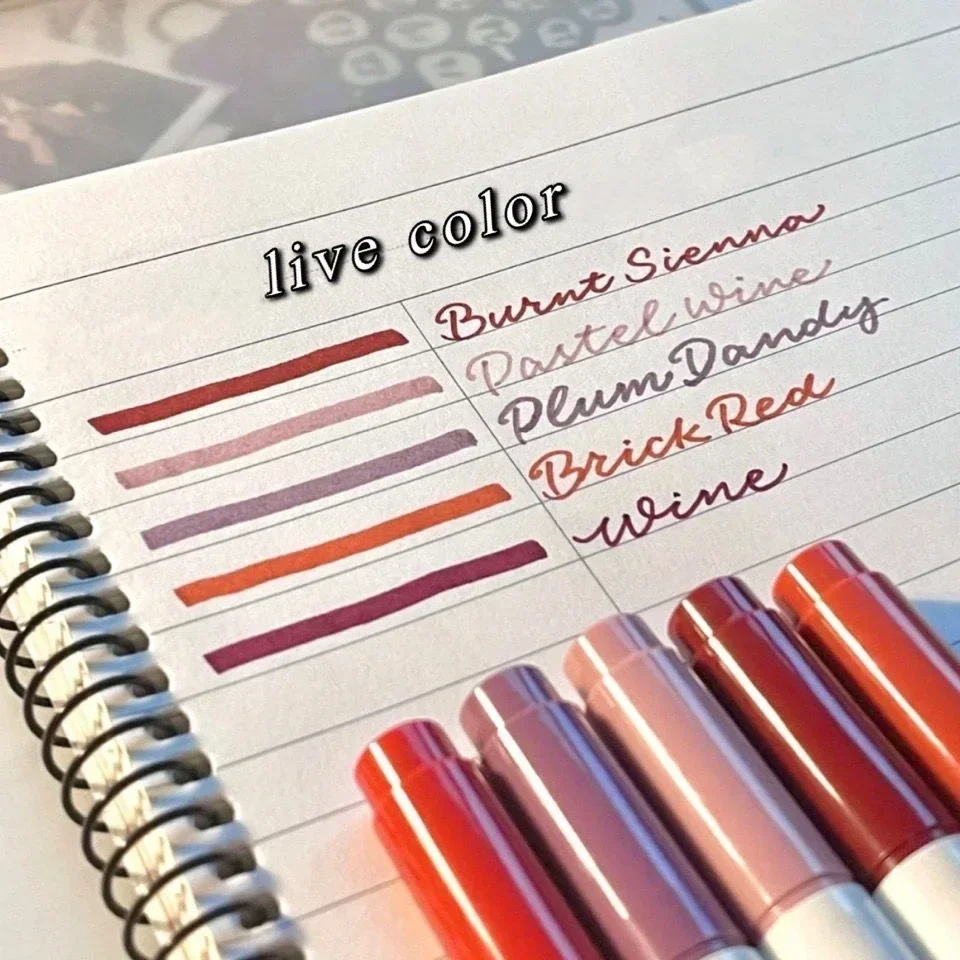 live color
Burnt Sienna
Pastel Wine
Plum Dandy
Brick Red
Wine